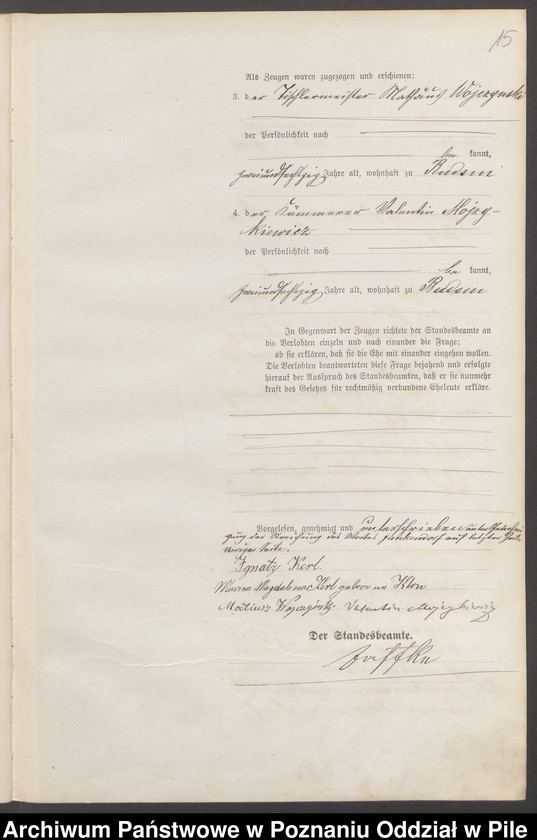 15
Als Zeugen waren zugezogen und erschienen:
3. der Tischlermeister Mathäus Wojczynski
der Persönlichkeit nach
be kannt,
zweiundsechzig Jahre alt, wohnhaft zu Budsin
4. der Kämmerer Valentin Mojzy-
kiewicz
der Persönlichkeit nach
be kannt,
zweiundsechzig Jahre alt, wohnhaft zu Budsin
In Gegenwart der Zeugen richtete der Standesbeamte an
die Verlobten einzeln und nach einander die Frage:
ob sie erklären, daß sie die Ehe mit einander eingehen wollen.
Die Verlobten beantworteten diese Frage bejahend und erfolgte
hierauf der Ausspruch des Standesbeamten, daß er sie nunmehr
kraft des Gesetzes für rechtmäßig verbundene Eheleute erkläre.
Vorgelesen, genehmigt und unterschrieben unter Genehmi-
gung der Streichung des Wortes auf letzter Zeile
voriger Seite.
Ignatz Kerl
Marina Magdalena Kerl geboren Klon
Valentin Mojzykiewicz
Der Standesbeamte.
Archiwum Państwowe w Poznaniu Oddział w Pile